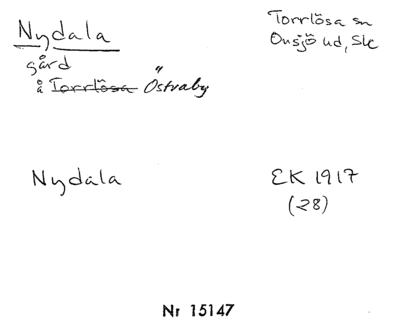 Nydala
Torrlösa sn
Onsjö hd, Sk
gård
å Torrlösa Östraby
Nydala
EK 1917
(28)
Nr 15147